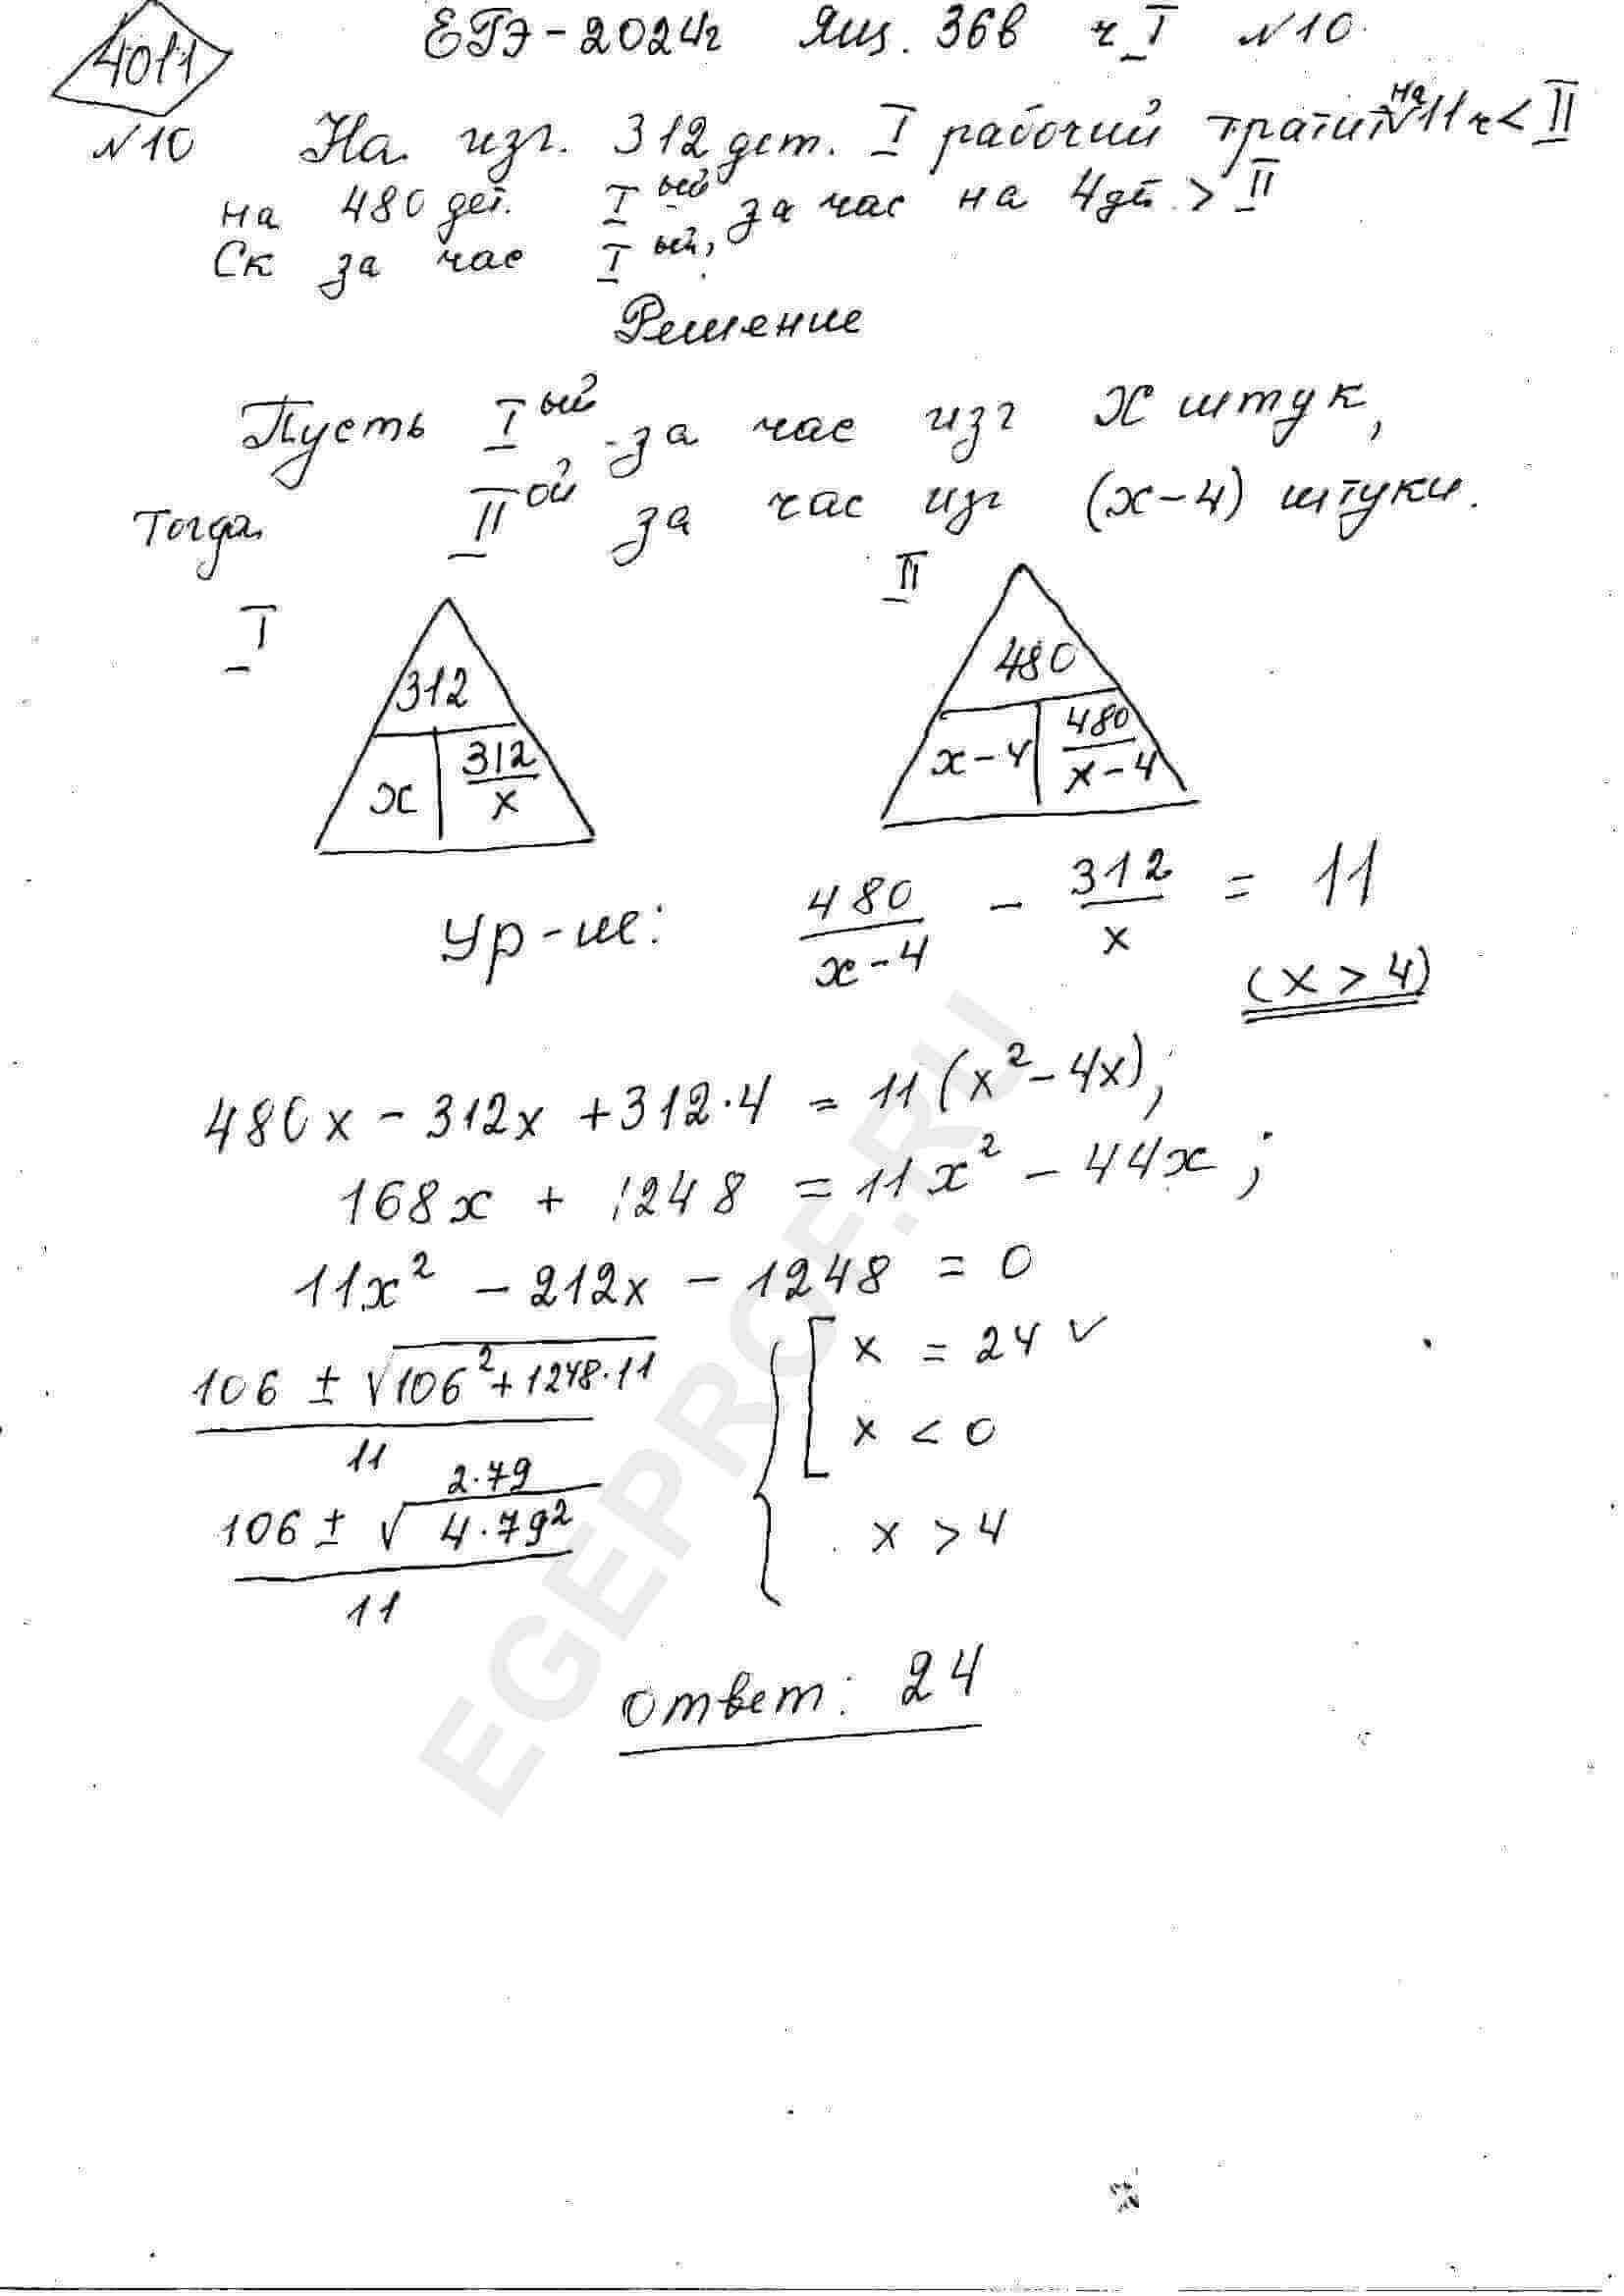 4011
ЕГЭ-2024г Ящ. 36в ч I №10.
№10 На изг. 312 дет. I рабочий тратит на 11ч < II
на 480 дет. I ый за час на 4дет. > II
Ск за час I ый,
Решение
Пусть I ый за час изг x штук,
Тогда II ой за час изг (x-4) штуки.
I II
312 480
x 312/x x-4 480/x-4
Ур-ие: 480/x-4 - 312/x = 11
(x > 4)
480x - 312x + 312·4 = 11(x² - 4x);
168x + 1248 = 11x² - 44x;
11x² - 212x - 1248 = 0
106 ± √106² + 1248·11
11
2·79
106 ± √4·79²
11
x = 24 ✓
x < 0
x > 4
Ответ: 24
EGEPROF.RU